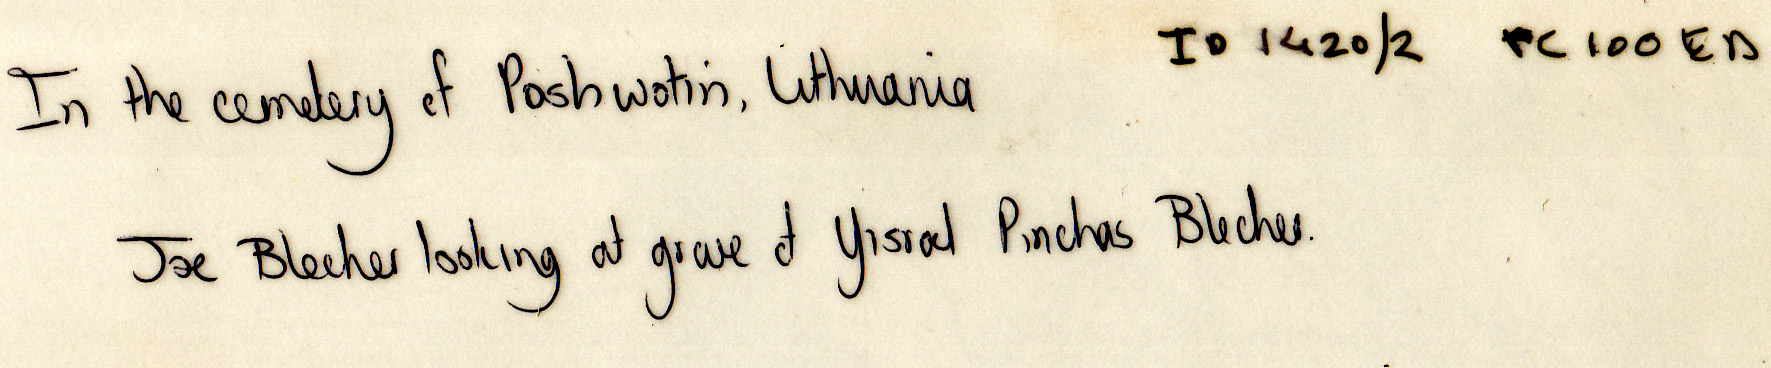 ID 1420/2 PC 100 ED
In the cemetery of Poshwotin, Lithuania
Joe Blecher looking at grave of Yisrael Pinchas Blecher.